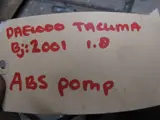 DAEWOO TACUMA
Bj:2001 1.8
ABS pomp